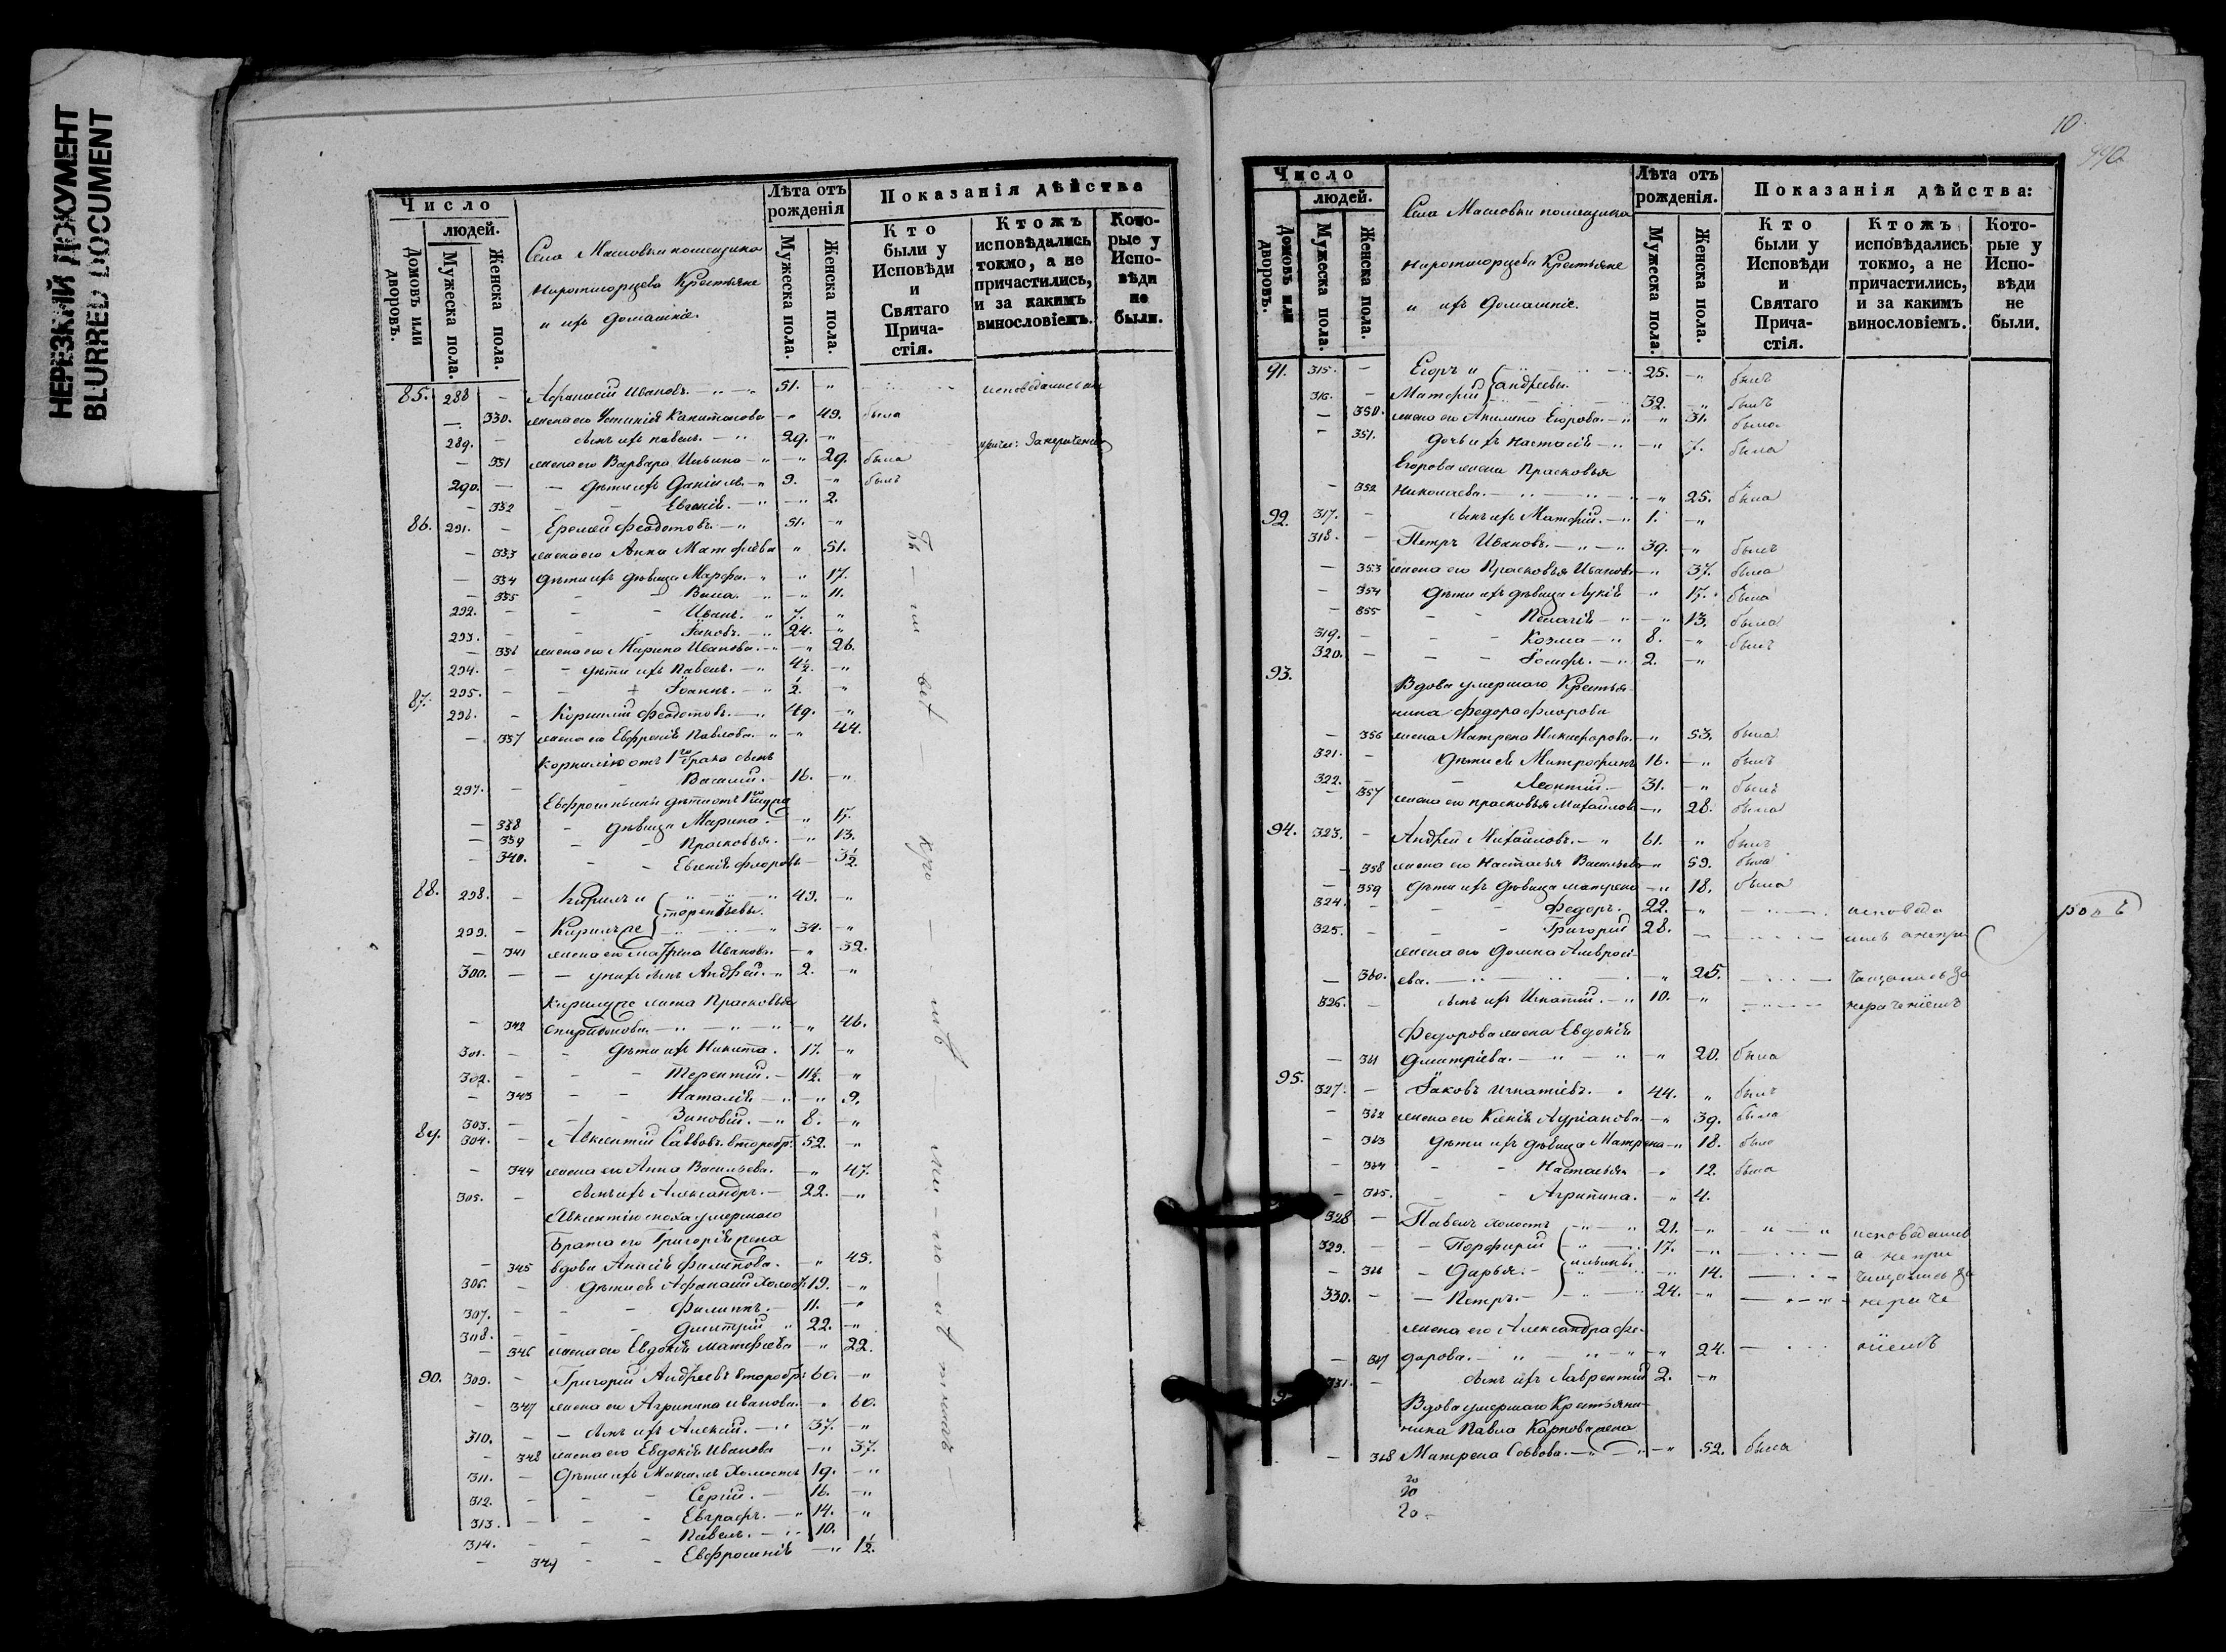 НЕРЕЗКИЙ ДОКУМЕНТ
BLURRED DOCUMENT
Число
людей.
Домовъ или дворовъ.
Мужеска пола.
Женска пола.
Села Масловки помещика
Крестьяне
и ихъ домашніе.
Лѣта отъ рожденія
Мужеска пола.
Женска пола.
Показанія дѣйства
Кто были у Исповѣди и Святаго Причастія.
Ктожъ исповѣдались токмо, а не причастились, и за какимъ винословіемъ.
Которые у Исповѣди не были.
85. 288 - Афанасій Ивановъ. 51. -"
- 330. жена его Устинія Капитонова -" 49. была
289. - сынъ ихъ Павелъ. 29. -"
- 331 жена его Варвара Ильина -" 29. была
290. - дѣти ихъ Даніилъ 9. -" былъ
- 332 Евгенія. -" 2.
86. 291. - Еремей Феодотовъ. 51. -"
- 333 жена его Анна Матфіева " 51.
- 334 дѣти ихъ дѣвица Марфа. " 17.
- 335 Васса. -" 11.
292. - Иванъ. 7. "
293. - Іаковъ. 24. -"
- 336 жена его Марина Иванова. -" 26.
294. - дѣти ихъ Павелъ. 4½. -"
295. - + Іоаннъ. ½. -"
87. 296. - Корнилій Феодотовъ. 49. -"
- 337 жена его Евфросинія Павлова. -" 44.
Корнилію отъ 1го брака сынъ
297. - Василій. 16. -"
Евфросиньины дѣти отъ 1го мужа
- 338 дѣвица Марина. " 15.
- 339 Прасковья. -" 13.
- 340. Евгенія Флорова - 3½.
88. 298. - Кирилъ и 49. -"
Терентьевы.
299. - Кирилъ же 34. -"
- 341 жена его Марина Иванова. -" 32.
300. - у нихъ сынъ Андрей. 2. -"
Кирилу же жена Прасковья
- 342 Спиридонова -" 46.
301. - дѣти ихъ Никита. 17. -"
302. - Терентій. 11½. -"
- 343 Наталія -" 9.
303. - Зиновій. 8. -"
89. 304. - Авксентій Савовъ. второбр: 52. -"
- 344 жена его Анна Васильева. -" 47.
305. - сынъ ихъ Александръ. 22. -"
Авксентію сноха умершаго
брата его Григорія жена
- 345 вдова Анисія Филипова. -" 45.
306. - дѣти ея Афанасій холостъ 19. -"
307. - Филиппъ. 11. -"
308. - Дмитрій 22. -"
- 346 жена его Евдокія Матфіева -" 22.
90. 309. - Григорій Андреевъ второбр: 60. -"
- 347 жена его Агрипина Иванова. -" 60.
310. - сынъ ихъ Алексій. 37. -"
- 348 жена его Евдокія Иванова -" 37.
311. - дѣти ихъ Максимъ холостъ 19. -"
312. - Сергій. 16. -"
313. - Евграфъ. 14. -"
314. - Павелъ. 10.
- 349 Евфросинія -" 1½.
10.
990
Число
людей.
Домовъ или дворовъ.
Мужеска пола.
Женска пола.
Села Масловки помещика
Крестьяне
и ихъ домашніе.
Лѣта отъ рожденія.
Мужеска пола.
Женска пола.
Показанія дѣйства:
Кто были у Исповѣди и Святаго Причастія.
Ктожъ исповѣдались токмо, а не причастились, и за какимъ винословіемъ.
Которые у Исповѣди не были.
91. 315. - Егоръ и 25. -" былъ
Андреевы.
316. - Матфій 32. -" былъ
- 350. жена его Акилина Егорова. -" 31. была
- 351. дочь ихъ Настасія -" 7. была
Егорова жена Прасковья
- 352 Николаева. -" 25. была
92. 317. - сынъ ихъ Матфій. 1. -"
318. - Петръ Ивановъ. 39. -" былъ
- 353 жена его Прасковья Иванова -" 37. была
- 354 дѣти ихъ дѣвица Лукія " 15. была
- 355 Пелагія -" 13. была
319. - Козма 8. -" былъ
320. - Іосифъ. 2. -"
93. Вдова умершаго Крестья-
нина Федора Флорова
- 356 жена Матрена Никифорова. -" 53. была
321. - дѣти ея Митрофанъ 16. -" былъ
322. - Леонтій. 31. -" былъ
- 357 жена его Прасковья Михайлова -" 28. была
94. 323. - Андрей Михайловъ. 61. " былъ
- 358 жена его Настасья Васильева -" 59. была
- 359 дѣти ихъ дѣвица Матрена -" 18. была
324. - Федоръ. 22. -" исповеда
325. - Григорій 28. лись а непри
жена его Домна Амвросі-
- 360. ева. -" 25. чащались за
326. - сынъ ихъ Игнатій. 10. -" нераченіемъ
Федорова жена Евдокія
- 361 Дмитріева. -" 20. была
95. 327. - Іаковъ Игнатіевъ. 44. " былъ
- 362 жена его Ксенія Адріанова. -" 39. была
- 363 дѣти ихъ дѣвица Матрена -" 18. была
- 364 Настасья -" 12. была
- 365. Агрипина. -" 4.
328 - Павелъ холостъ 21. -" исповедались
329. - Порфирій 17. -" а непри
Ильины.
- 366 Дарья. -" 14. чащались за
330. - Петръ. 24. -" нераче
жена его Александра Фе-
- 367 дорова. -" 24. ніемъ
331. - сынъ ихъ Лаврентій 2. -"
Вдова умершаго Крестьяни-
нина Павла Карпова жена
- 368 Матрена Саввова. -" 52. была